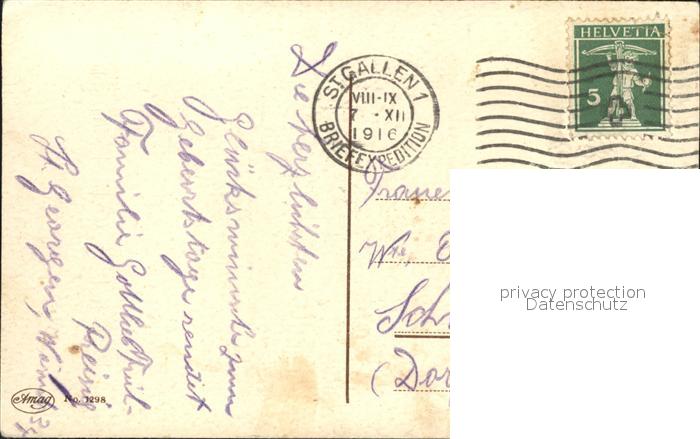 Die herzlichsten
Glückwünsche zum
Geburtstage sendet
Familie Gottlieb
St. Georgen,
ST. GALLEN 1
VIII-IX
7. -XII
1916
BRIEFEXPEDITION
HELVETIA
5
Wwe,
Sch
(Dor
privacy protection
Datenschutz
Amag No. 1298